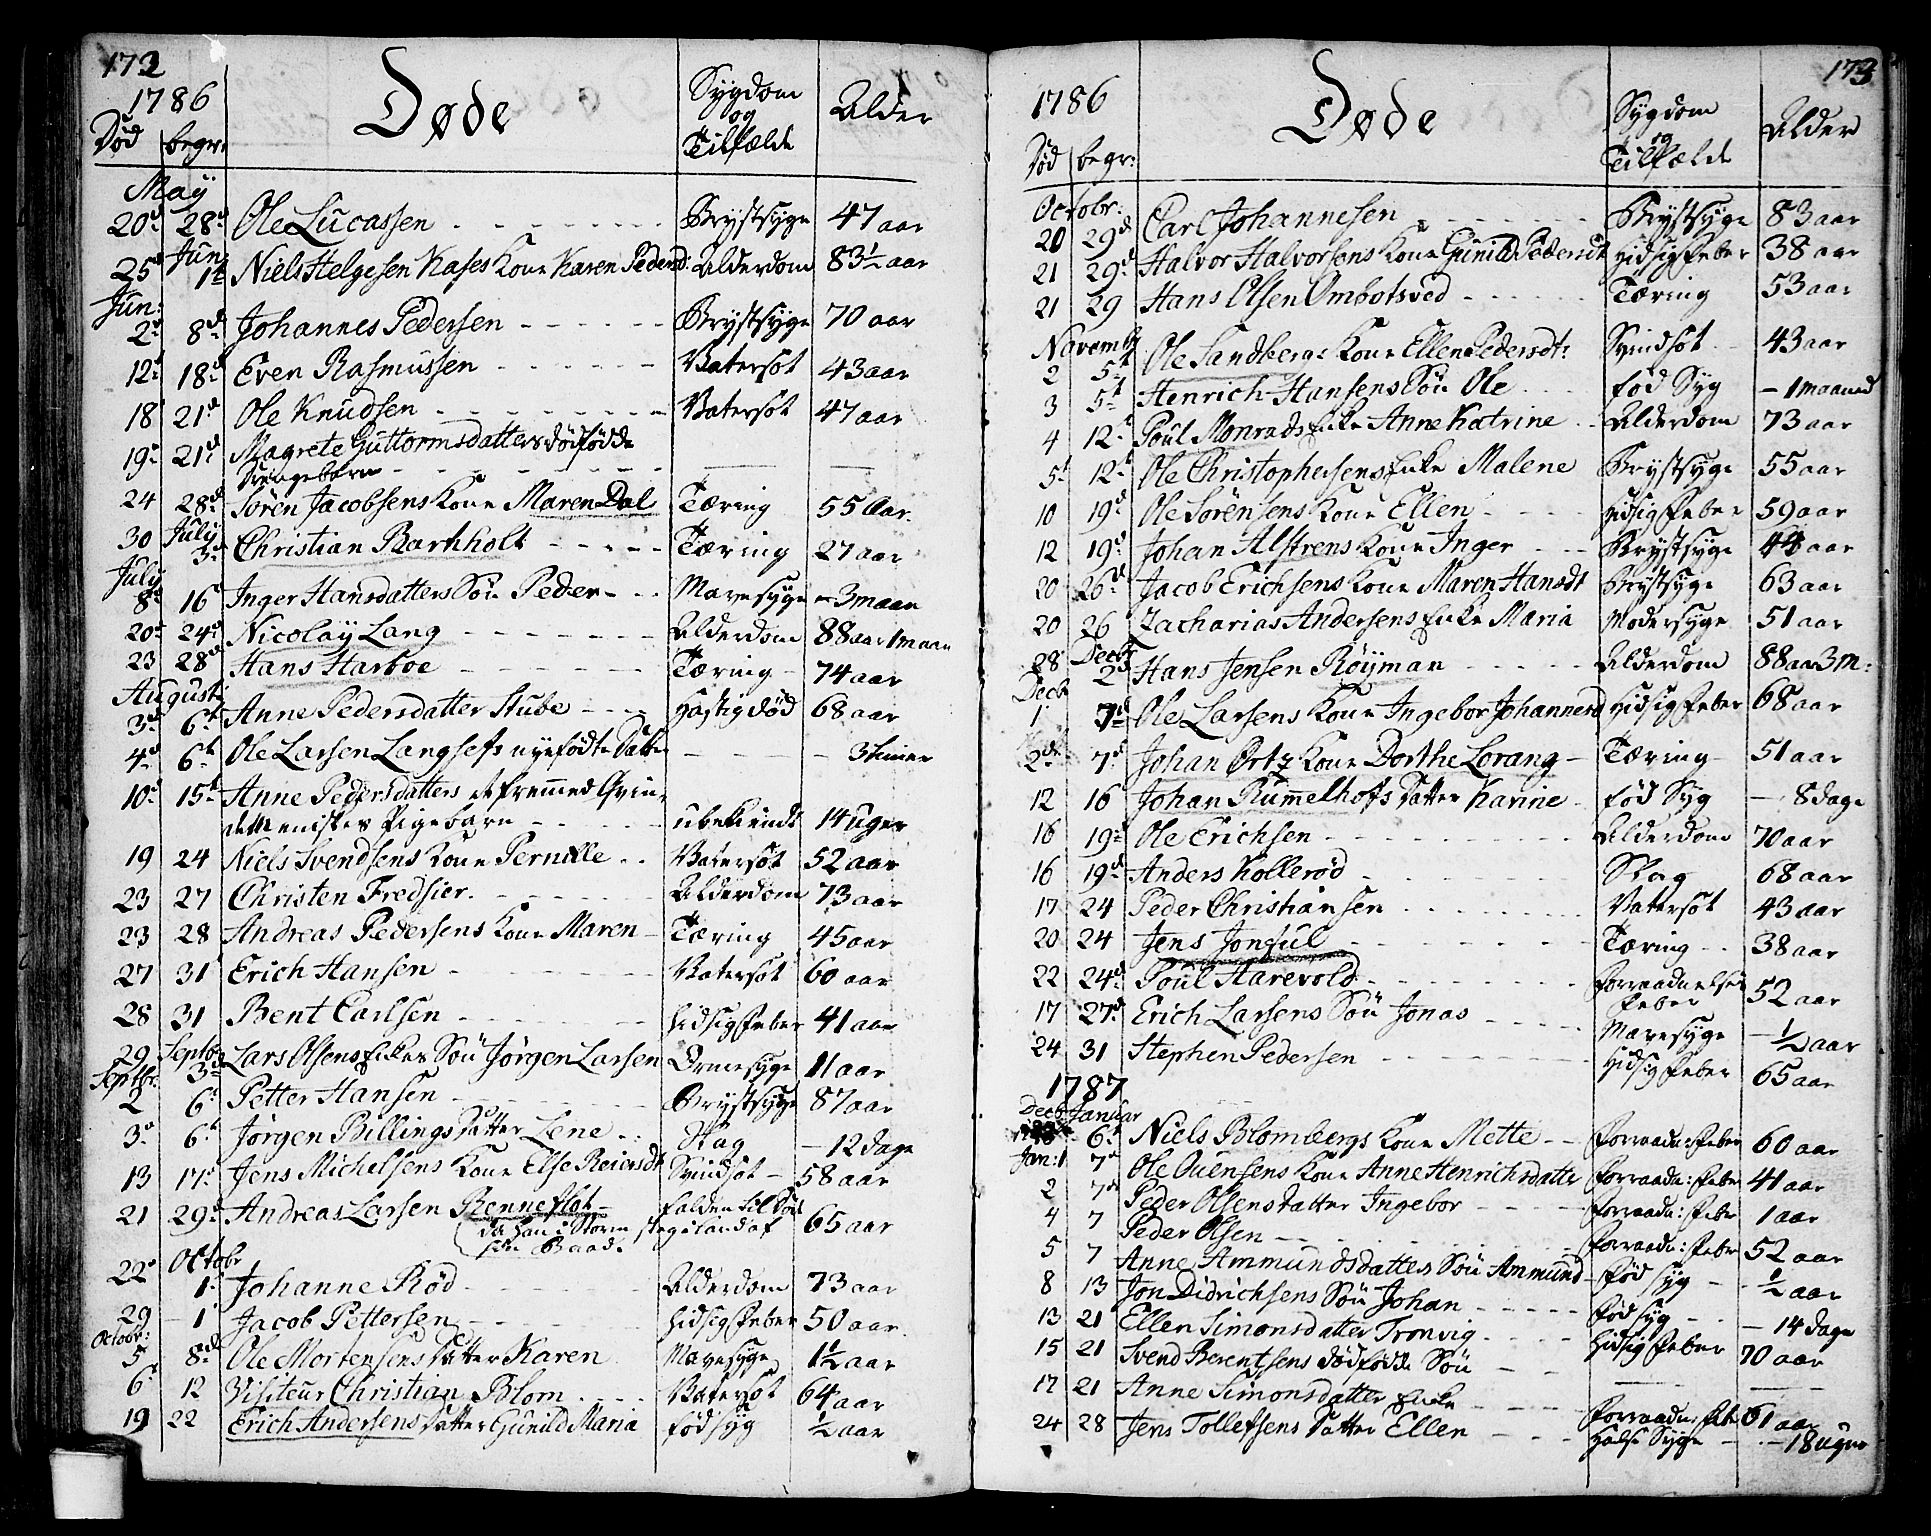 172
1786
Død begr: Døde Sygdom og Tilfælde Alder
May
20d 28d Ole Lucassen Brystsyge 47 aar
25d Jun 1te Niels Helgesen Kases Kone Karen Pedersd: Alderdom 83½ aar
Jun:
2d 8d Johannes Pedersen Brystsyge 70 aar
12t 18d Even Rasmussen Vatersot 43 aar
18 21d Ole Knudsen Vatersot 47 aar
19e 21d Magrete Guttormsdatters dødfødde
Drengebarn
24 28d Søren Jacobsens Kone Maren Dal Tæring 55 Aar
30 July 3d Christian Barkholt Tæring 27 aar
July
8d 16d Inger Hansdatters Søn Peder Mavesyge - 3 maan
20d 24d Nicolaÿ Lang Alderdom 88 aar 1 maan
23 28d Hans Harboe Tæring 74 aar
August:
3d 6t Anne Pedersdatter Stube Hastig død 68 aar
4d 6t Ole Larsen Langsefs nyefødte Datter 3 timer
10d 15t Anne Pedersdatters et fremmed Qvin-
demenniskes Pigebarn ubekiendt 14 uger
19 24 Niels Svendsens Kone Pernille Vatersot 52 aar
23 27 Christen Fredsier Alderdom 73 aar
23 28 Andreas Pedersens Kone Maren Tæring 45 aar
27 31 Erich Hansen Vatersot 60 aar
28 31 Bent Carlsen Hidsig Feber 41 aar
29 Septbr 3d Lars Olsens Enkes Søn Jørgen Larsen Ormesyge 11 aar
Septbr:
2 6t Petter Hansen Brystsyge 87 aar
3d 6t Jørgen Billings Datter Lene Slag - 12 dage
13 17d Jens Michelsens Kone Else Reiersdt Svindsot 58 aar
21 29d Andreas Larsen Renneflot falden til Døde 65 aar
(da han i Storm steg i land af
sin Baad.
22d Octobr 1t Johanne Rød Alderdom 73 aar
29 1 Jacob Pettersen Hidsig Feber 50 aar
Octobr:
5 8d Ole Mortensens Datter Karen Mavesyge 1½ aar
6t 12 Visiteur Christian Blom Vatersot 64 aar
19 22 Erich Andersens Datter Gunild Maria fød syg ½ aar
173
1786
Død begr: Døde Sygdom og Tilfælde Alder
Octobr:
20 29d Carl Johannesen Brystsyge 83 aar
21 29d Halvor Halvorsens Kone Gunild Pedersdt Hidsig Feber 38 aar
21 29 Hans Olsen Ombotsved Tæring 53 aar
Novembr
2 5t Ole Sandbergs Kone Ellen Pedersdt: Svindsot 43 aar
3 5t Henrich Hansens Søn Ole fød Syg - 1 maaned
4 12t Poul Monrads Enke Anne Katrine Alderdom 73 aar
5t 12t Ole Christophersens Enke Malene Brystsyge 55 aar
10 19d Ole Sørensens Kone Ellen Hidsig Feber 59 aar
12 19d Johan Alstrens Kone Inger Brystsyge 44 aar
20 26d Jacob Erichsens Kone Maren Hansdt Brystsyge 63 aar
20 26 Zacharias Andersens Enke Maria Modersyge 51 aar
28 Decbr 2d Hans Jensen Røyman Alderdom 88 aar 3 m:
Decb
1 7d Ole Larsens Kone Ingebor Johannesd Hidsig Feber 68 aar
2d 7d Johan Ørtz Kone Dorthe Lorang Tæring 51 aar
12 16 Johan Rummelhofs Datter Karine fød Syg - 8 dage
16 19d Ole Erichsen Alderdom 70 aar
16 19d Anders Kollerød Slag 68 aar
17 24 Peder Christiansen Vatersot 43 aar
20 24 Jens Jonful Tæring 38 aar
22 24d Poul Harevold Forraadnelses Feber 52 aar
17 27d Erich Larsens Søn Jonas Mavesyge - ½ aar
24 31 Stephen Pedersen Hidsig Feber 65 aar
1787
Decb Januar
6t Niels Blombergs Kone Mette Forraadn: Feber 60 aar
Jan: 1 7d Ole Ouensens Kone Anne Henrichsdatter Forraadn: Feber 41 aar
2 7d Peder Olsens Datter Ingebor Forraadn: Feber 1 aar
4 7 Peder Olsen Forraadn: Feber 52 aar
5 7 Anne Ammundsdatters Søn Ammund fød syg - ½ aar
8 13 Jon Didrichsens Søn Johan fød syg - 14 dage
13 21 Ellen Simonsdatter Tronvig Hidsig Feber 70 aar
15 21 Svend Berentsens dødfødde Søn
17 21 Anne Simonsdatter Enke Forraadn: Feber 61 aar
24 28 Jens Tollefsens Datter Ellen Hals Syge - 18 uger